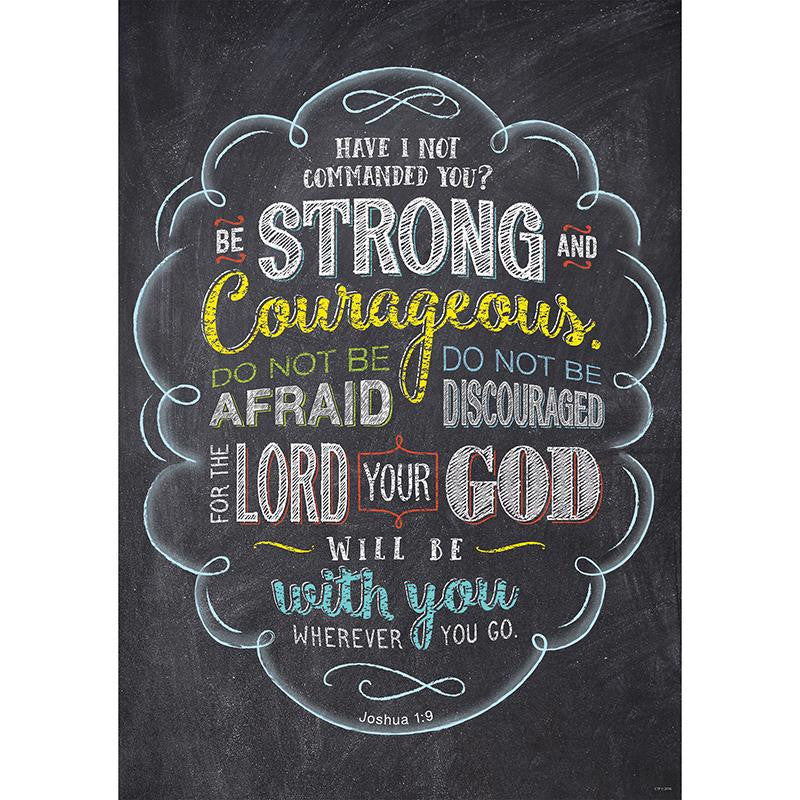 HAVE I NOT
COMMANDED YOU?
BE STRONG AND
Courageous.
DO NOT BE AFRAID
DO NOT BE DISCOURAGED
FOR THE LORD YOUR GOD
WILL BE
with you
WHEREVER YOU GO.
Joshua 1:9